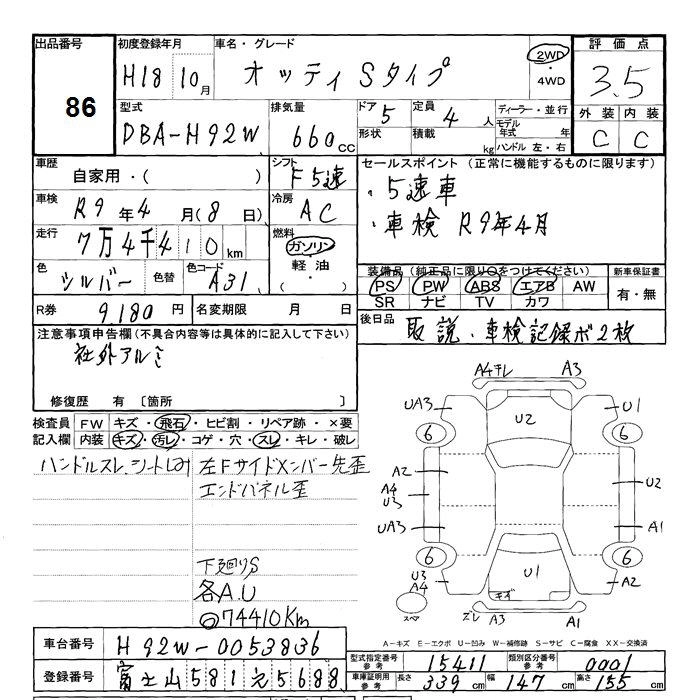 出品番号
86
初度登録年月
H18 10月
車名・グレード
オッティ Sタイプ
2WD
・
4WD
評価点
3.5
型式
DBA-H92W
排気量
660cc
ドア
5
定員
4人
形状
積載
kg
ディーラー・並行
モデル年式 年
ハンドル 左・右
外装 内装
C C
車歴
自家用・( )
シフト
F5速
セールスポイント (正常に機能するものに限ります)
・5速車
・車検 R9年4月
車検
R9年4月(8日)
冷房
AC
走行
7万4千410km
燃料
ガソリン
・
軽油
( ・ )
色
シルバー
色替
色コード
A31
装備品 (純正品に限り○をつけてください)
PS PW ABS エアB AW
SR ナビ TV カワ
新車保証書
有・無
R券
9180円
名変期限 月 日
後日品
取説・車検記録ボ2枚
注意事項申告欄(不具合内容等は具体的に記入して下さい)
社外アルミ
修復歴 有 〔箇所 〕
検査員記入欄
FW キズ・飛石・ヒビ割・リペア跡・×要
内装 キズ・汚レ・コゲ・穴・スレ・キレ・破レ
ハンドルスレ シートしみ
左Fサイドメンバー先歪
エンドパネル歪
下廻りS
各A.U
◎74410Km
A4キレ A3
UA3 U1
6 U2 6
A2
A4
U3
U2
UA3 A1
6 6
U3
A4
U1
A2
キズ
スペア
ズレ A3 A1
A-キズ E-エクボ U-凹み W-補修跡 S-サビ C-腐食 XX-交換済
車台番号
H92W-0053836
型式指定番号
参考
15411
類別区分番号
参考
0001
登録番号
富士山581え5688
車庫証明用
参考
長さ 339cm 幅 147cm 高さ 155cm